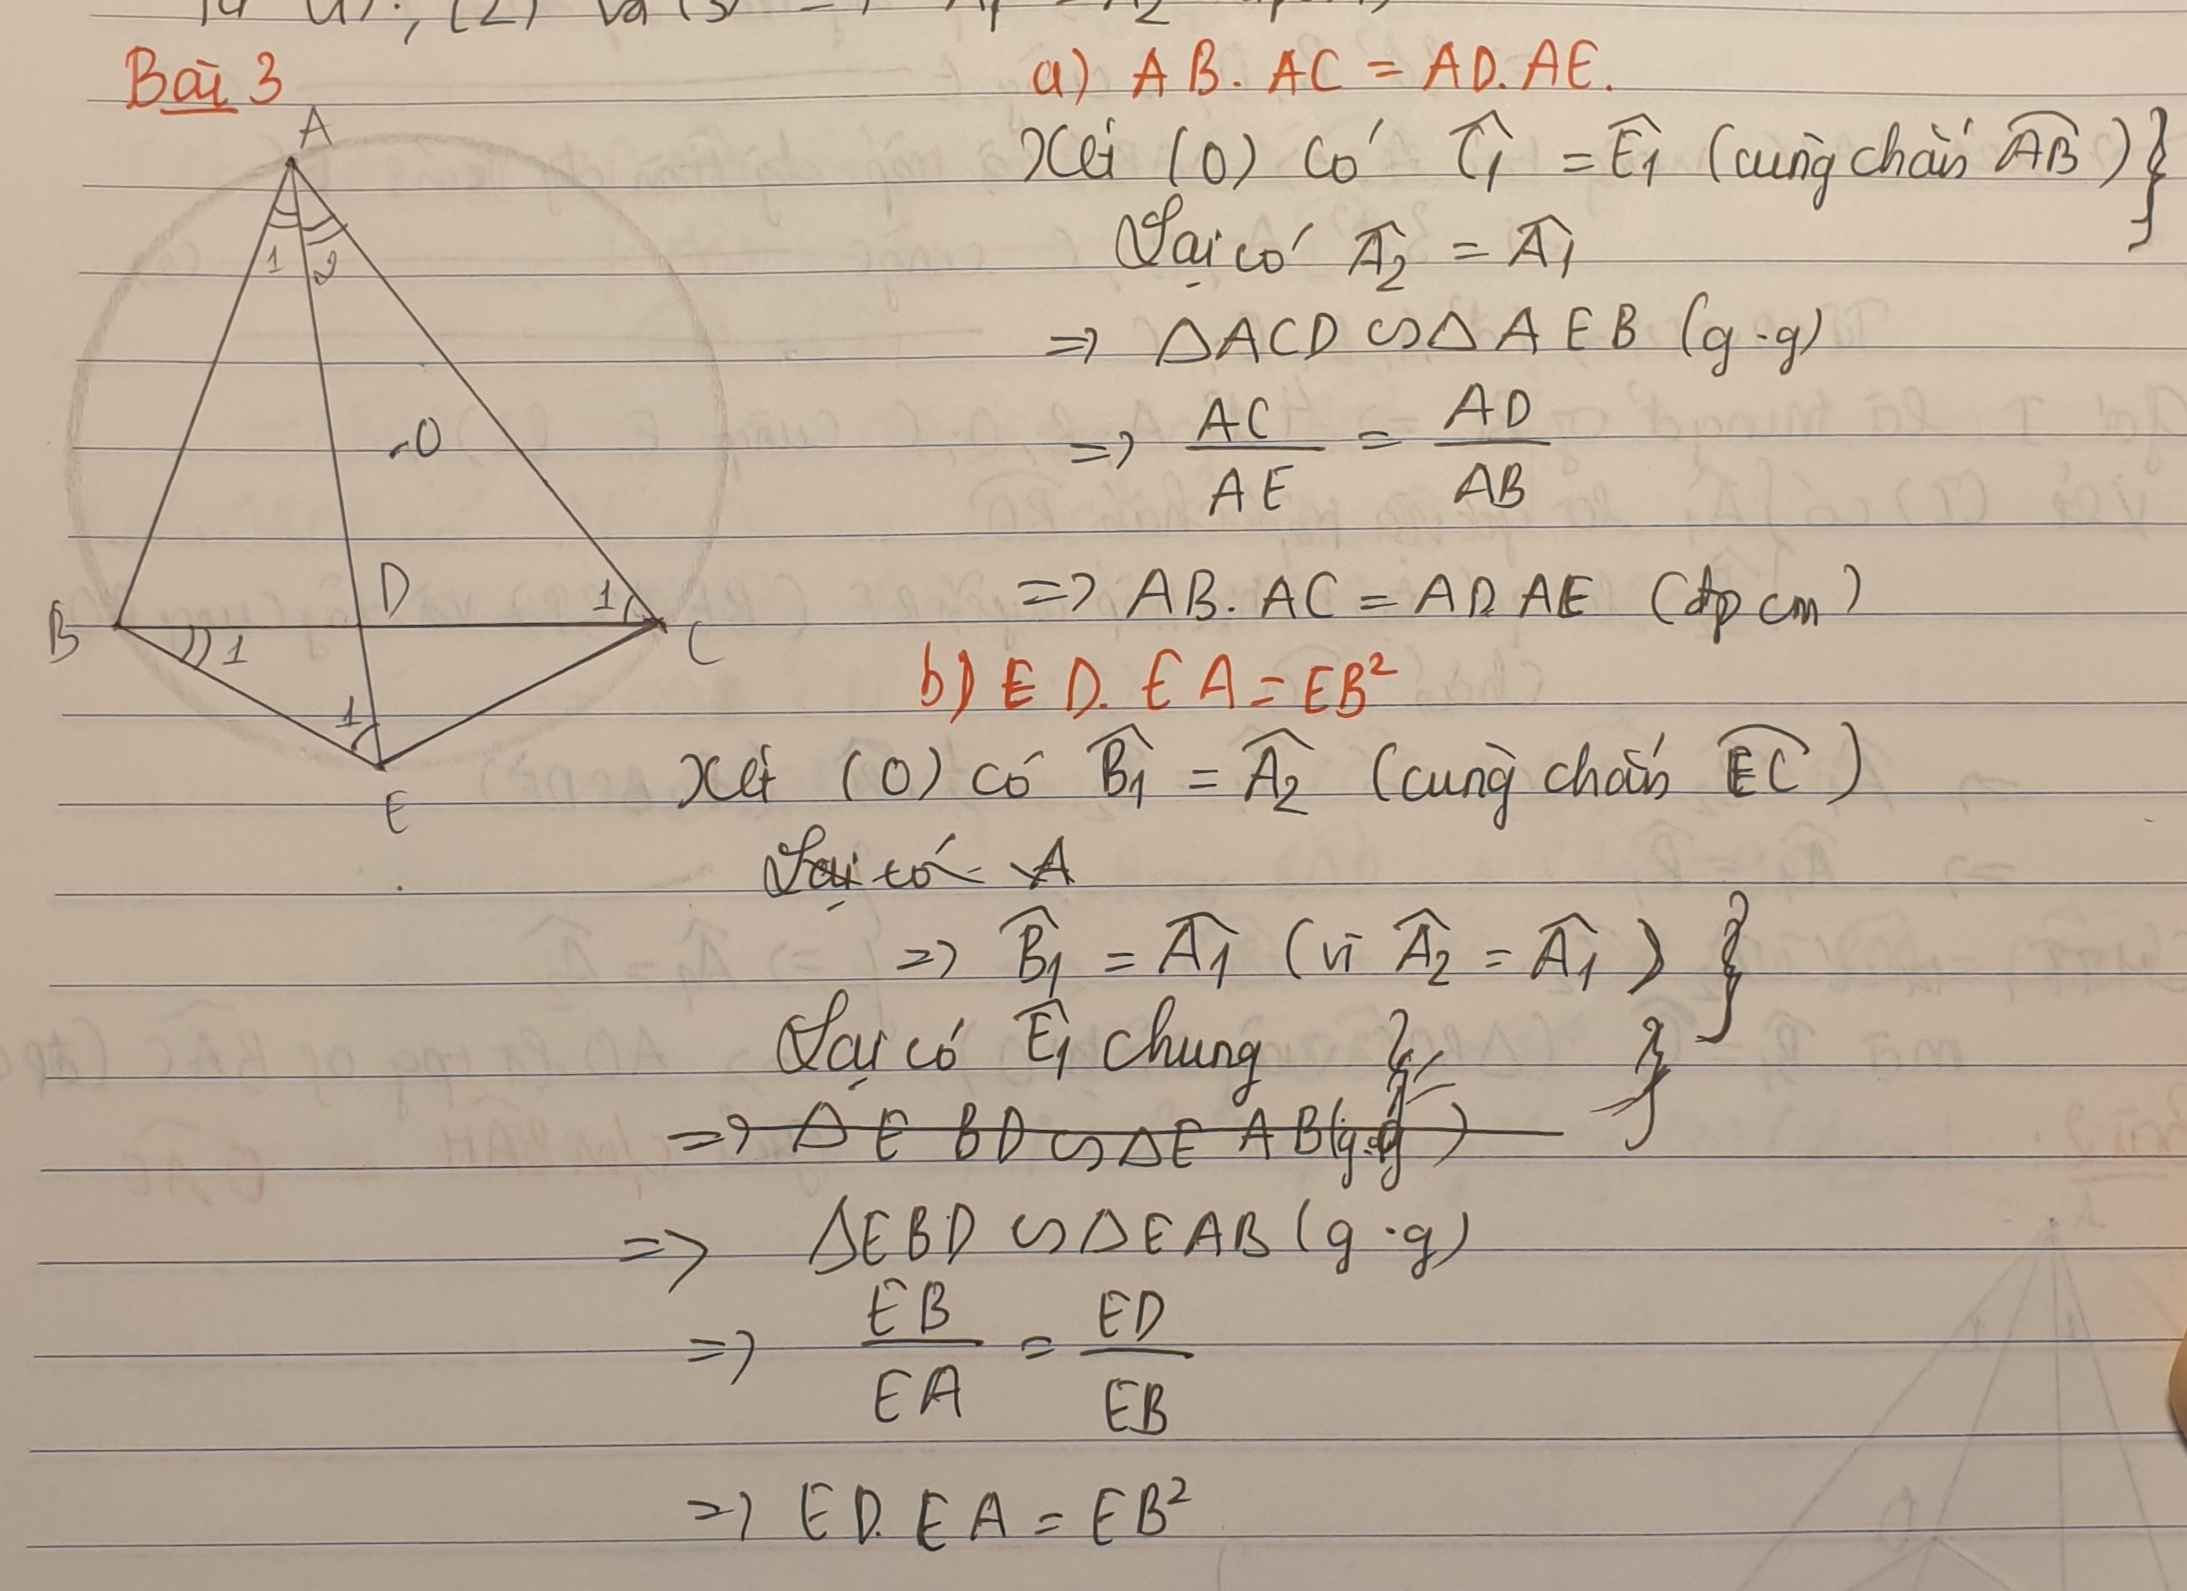 Bài 3
a) AB. AC = AD. AE.
Xét (O) có Ĉ1 = Ê1 (cùng chắn AB)
Lại có Â2 = Â1
=> ΔACD ∽ ΔAEB (g.g)
=> AC/AE = AD/AB
=> AB. AC = AD. AE (đpcm)
b) ED. EA = EB²
Xét (O) có B̂1 = Â2 (cùng chắn EC)
Lại có A
=> B̂1 = Â1 (vì Â2 = Â1)
Lại có Ê1 chung
=> ΔEBD ∽ ΔEAB (g.g)
=> ΔEBD ∽ ΔEAB (g.g)
=> EB/EA = ED/EB
=> ED. EA = EB²
A
1 2
O
D
1
B
1
C
1
E